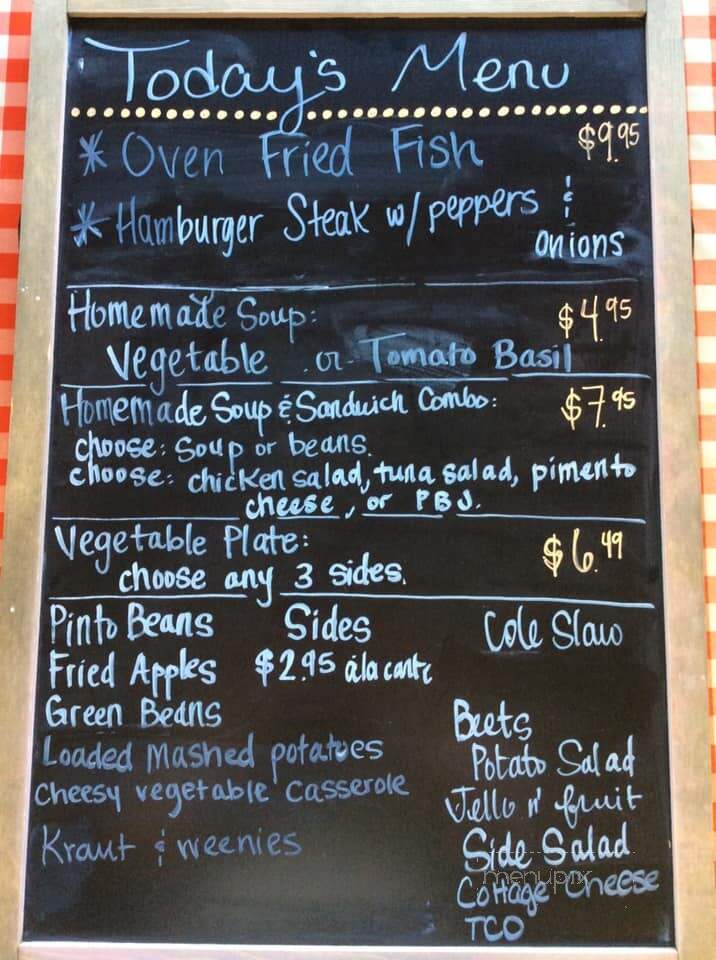 Today's Menu
* Oven Fried Fish $9.95
* Hamburger Steak w/ peppers &
onions
Homemade Soup: $4.95
Vegetable or Tomato Basil
Homemade Soup & Sandwich Combo: $7.95
choose: Soup or beans.
choose: chicken salad, tuna salad, pimento
cheese, or PBJ.
Vegetable Plate: $6.49
choose any 3 sides.
Pinto Beans Sides Cole Slaw
Fried Apples $2.95 àla carte
Green Beans Beets
Loaded Mashed potatoes Potato Salad
Cheesy vegetable Casserole Jello n' fruit
Kraut & weenies Side Salad
menupix
Cottage Cheese
TCO